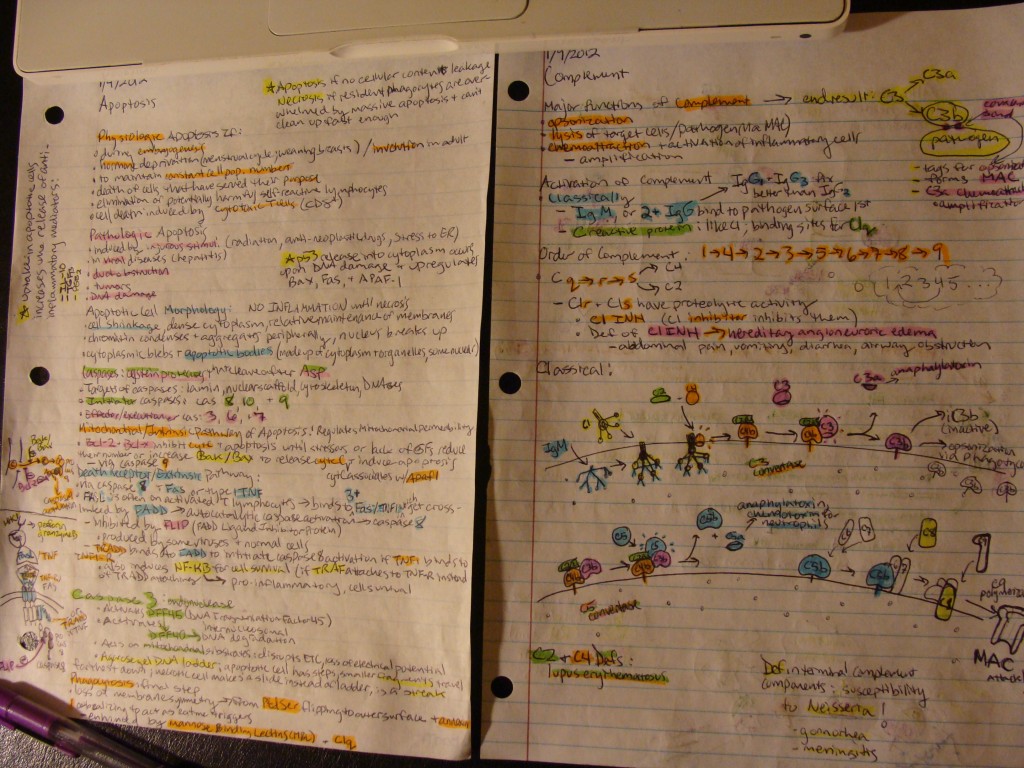 Apoptosis
★Apoptosis if no cellular contents leakage
Necrosis if resident phagocytes are over-
whelmed by massive apoptosis + can't
clean up fast enough
Physiologic Apoptosis IF:
• during embryogenesis
• hormone deprivation (menstrual cycle, weaning breasts) / involution in adult
• to maintain constant cell pop. numbers
• death of cells that have served their purpose
• elimination of potentially harmful self-reactive lymphocytes
• cell death induced by cytotoxic T cells (CD8)
★ uptake in apoptotic cells
increases the release of anti-
inflammatory mediators:
Pathologic Apoptosis
• induced by injurious stimuli (radiation, anti-neoplastic drugs, stress to ER)
• in viral diseases (hepatitis)
• duct obstruction
• tumors
• DNA damage
★p53 release into cytoplasm occurs
upon DNA damage + upregulates
Bax, Fas, + APAF-1
Apoptotic Cell Morphology: NO INFLAMMATION until necrosis
• cell shrinkage, dense cytoplasm, relative maintenance of membranes
• chromatin condenses + aggregates peripherally, nucleus breaks up
• cytoplasmic blebs + apoptotic bodies (made up of cytoplasm + organelles, some nuclei)
Caspases: cysteine proteases that cleave after Asp
• Targets of caspases: lamin, nuclear scaffold, cytoskeleton, DNAses
• Initiator caspases: cas 8, 10, + 9
• Effector/executioner cas: 3, 6, + 7
Mitochondrial/Intrinsic Pathway of Apoptosis: Regulates Mitochondrial permeability
• Bcl-2 + Bclx inhibit cyt c + apoptosis until stressors or lack of GFs reduce
their number or increase Bak/Bax to release cyt c + induce apoptosis
• via caspase 9
cyt c associates w/ Apaf1
Death receptor/Extrinsic Pathway:
• via caspase 8 + Fas or type 1 TNF
• FasL is often on activated T lymphocytes → binds 3+ Fas/TNFR
linked by FADD → autocatalytic caspase activation → caspase 8
- Inhibited by FLIP (FADD Ligand inhibitor protein)
• produced by some viruses + normal cells
- TRADD binds to FADD to initiate caspase 8 activation if TNF1 binds to
• also induces NF-KB for cell survival (if TRAF attaches to TNFR instead
of TRADD machinery → pro-inflammatory, cell survival
Caspase 3:
• Activates DFF45 (DNA Fragmentation Factor 45)
internucleosomal
DFF40 → DNA degradation
• Acts on mitochondrial substrates: disrupts ETC, loss of electrical potential
• Agarose gel DNA ladder, apoptotic cell has steps, smaller fragments travel
farther down; necrotic cell makes a slide instead of a ladder, is a streak
Phagocytosis: final step
• loss of membrane symmetry → from PtdSer flipping to outer surface + annexin
• enhanced by Mannose Binding Lectins (MBL) + C1q
1/9/2012
Complement
Major functions of Complement → end result: C3 C3a
C3b
pathogen
• opsonization
• lysis of target cells/pathogen (via MAC)
• chemoattraction + activation of inflammatory cells
- amplification
- forms MAC
Activation of Complement → IgG1 + IgG3 fix
better than IgG2
• Classically
- IgM or 2+ IgG bind to pathogen surface 1st
C reactive protein: like Ci, binding sites for C1q
Order of Complement: 1→4→2→3→5→6→7→8→9
C q→r→s C4
C2
1 2 3 4 5 ...
- C1r + C1s have proteolytic activity
• C1 INH (C1 inhibitor inhibits them)
• Def of C1 INH → hereditary angioneurotic edema
- abdominal pain, vomiting, diarrhea, airway obstruction
Classical:
C3a → anaphylatoxin
IgM
C3
convertase
iC3b
(inactive)
opsonization
via phagocytes
anaphylatoxin,
chemotoxin for
neutrophil
C5 C5b C5a
C5b C5b
C5
convertase
MAC
C2 + C4 Defs:
lupus erythematosus
Def in terminal complement
components: susceptibility
to Neisseria!
- gonorrhea
- meningitis